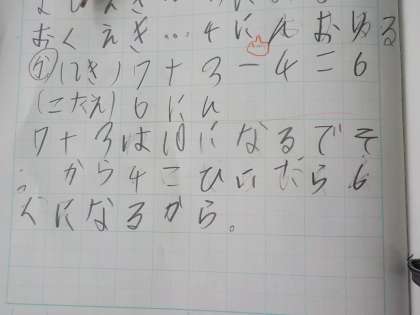 おくえき…4にんおりる
(しき)7+3-4=6
(こたえ)6にん
7+3は10になるでそ
こから4こひいたら6
になるから。